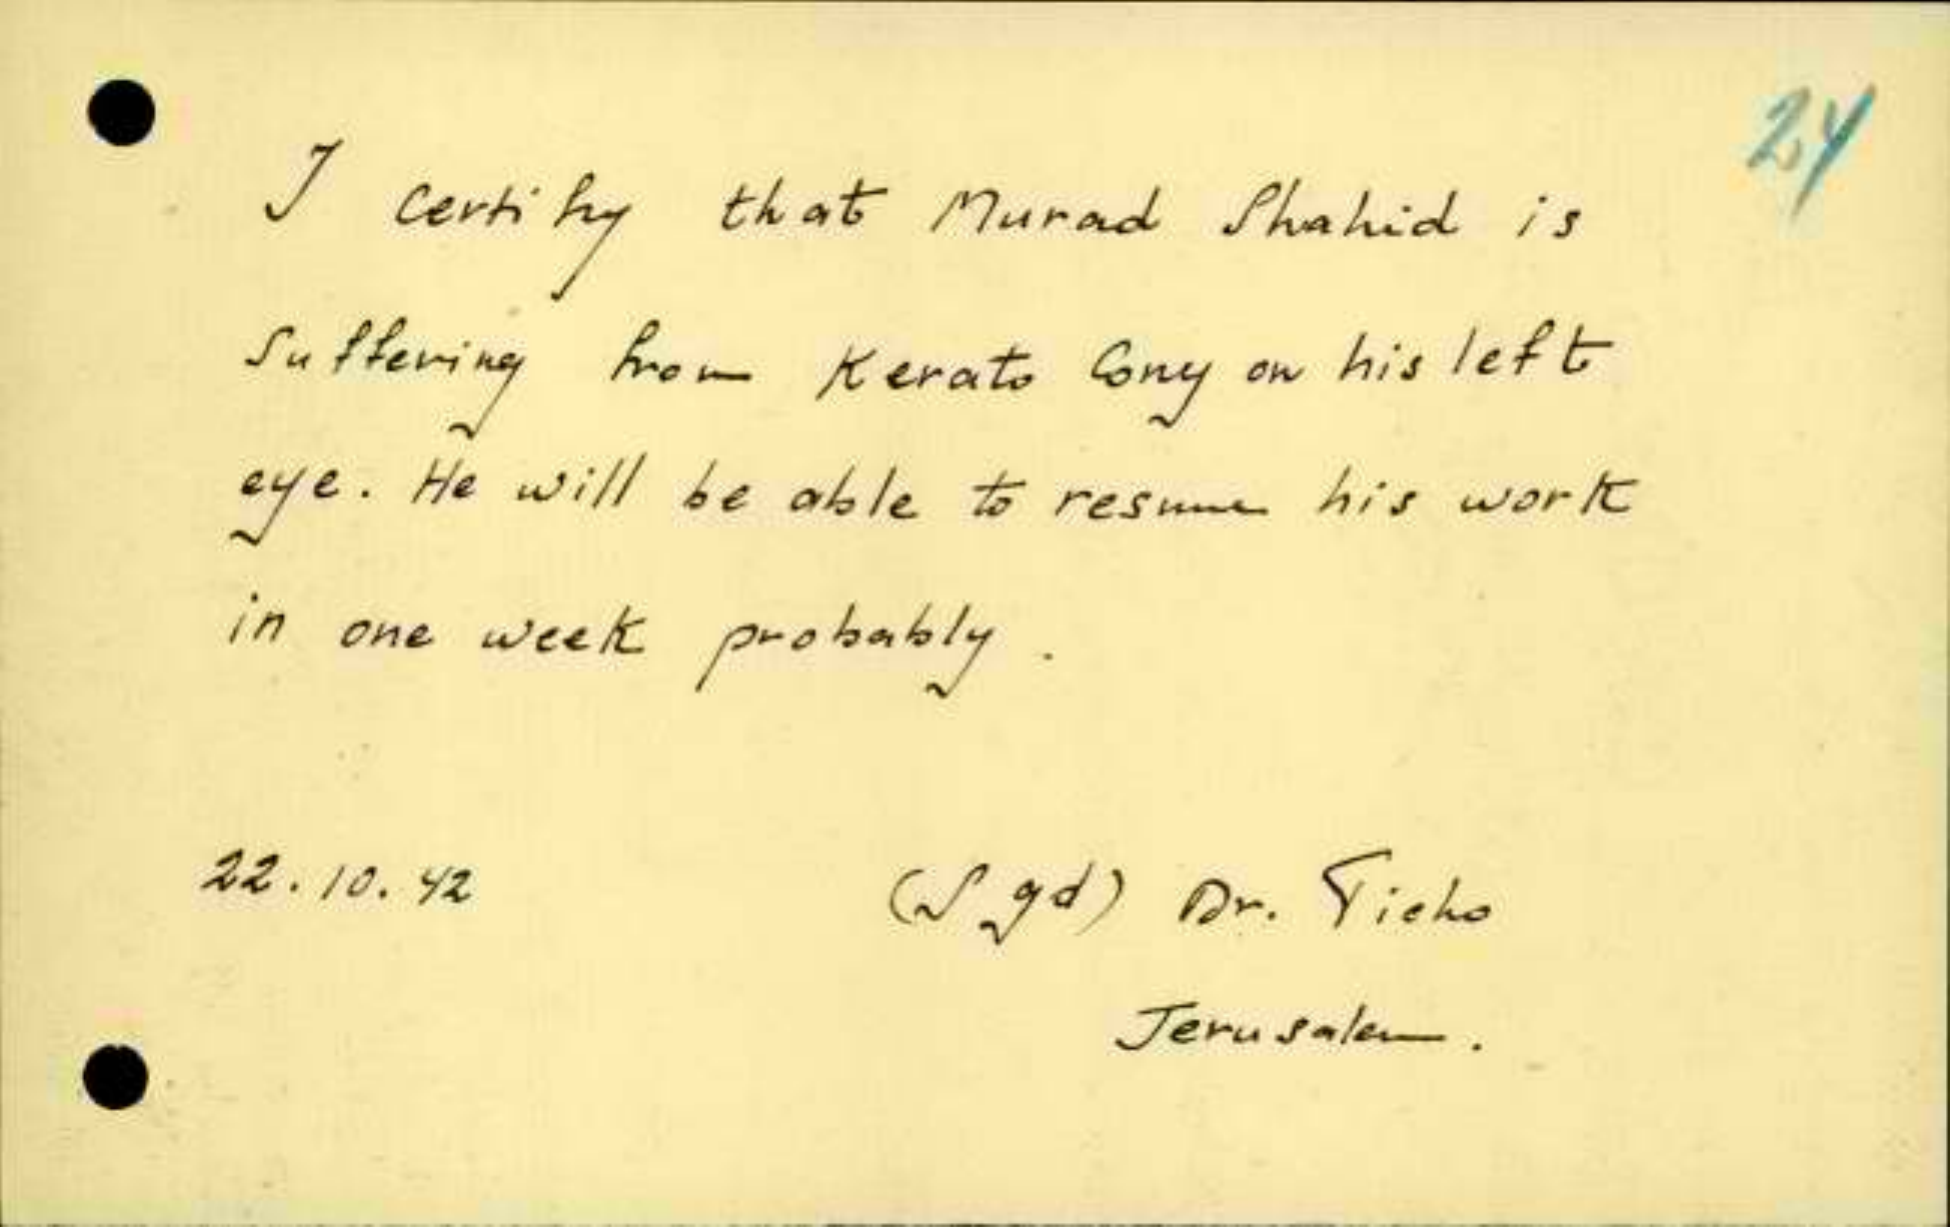 24
I certify that Murad Shahid is
suffering from Kerato Cony on his left
eye. He will be able to resume his work
in one week probably.
22.10.42 (Sgd) Dr. Ticho
Jerusalem.